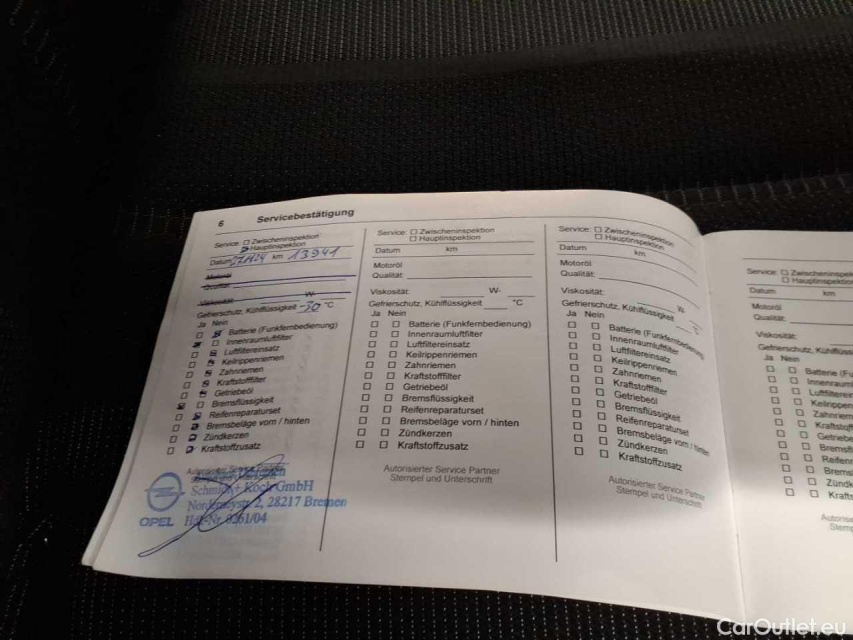 6 Servicebestätigung
Service: Zwischeninspektion
Hauptinspektion
Datum km 13941
Motoröl
Qualität:
Viskosität: W-
Gefrierschutz, Kühlflüssigkeit -30 °C
Ja Nein
Batterie (Funkfernbedienung)
Innenraumluftfilter
Luftfiltereinsatz
Keilrippenriemen
Zahnriemen
Kraftstofffilter
Getriebeöl
Bremsflüssigkeit
Reifenreparaturset
Bremsbeläge vorn / hinten
Zündkerzen
Kraftstoffzusatz
Autorisierter Service Partner
Schmidt + Koch GmbH
28217 Bremen
OPEL 0261/04
Service: Zwischeninspektion
Hauptinspektion
Datum km
Motoröl
Qualität:
Viskosität: W-
Gefrierschutz, Kühlflüssigkeit °C
Ja Nein
Batterie (Funkfernbedienung)
Innenraumluftfilter
Luftfiltereinsatz
Keilrippenriemen
Zahnriemen
Kraftstofffilter
Getriebeöl
Bremsflüssigkeit
Reifenreparaturset
Bremsbeläge vorn / hinten
Zündkerzen
Kraftstoffzusatz
Autorisierter Service Partner
Stempel und Unterschrift
Service: Zwischeninspektion
Hauptinspektion
Datum km
Motoröl
Qualität:
Viskosität: W-
Gefrierschutz, Kühlflüssigkeit °C
Ja Nein
Batterie (Funkfernbedienung)
Innenraumluftfilter
Luftfiltereinsatz
Keilrippenriemen
Zahnriemen
Kraftstofffilter
Getriebeöl
Bremsflüssigkeit
Reifenreparaturset
Bremsbeläge vorn / hinten
Zündkerzen
Kraftstoffzusatz
Autorisierter Service Partner
Stempel und Unterschrift
Service: Zwischeninspe
Hauptinspekti
Datum km
Motoröl
Qualität:
Viskosität:
Gefrierschutz, Kühlflüss
Ja Nein
Batterie (Fu
Innenraum
Luftfilterei
Keilrippen
Zahnriem
Kraftstof
Getriebe
Bremsfl
Reifen
Brems
Zündk
Krafts
Autoris
Stemp
CarOutlet.eu